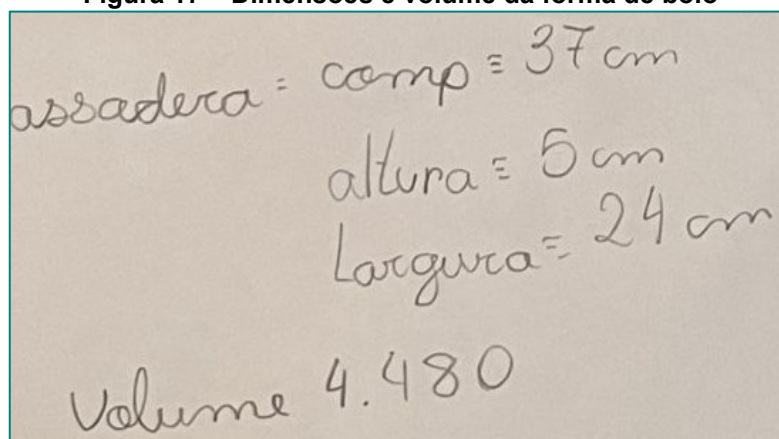 assadera = comp = 37 cm
altura = 5 cm
Largura = 24 cm
Volume 4.480